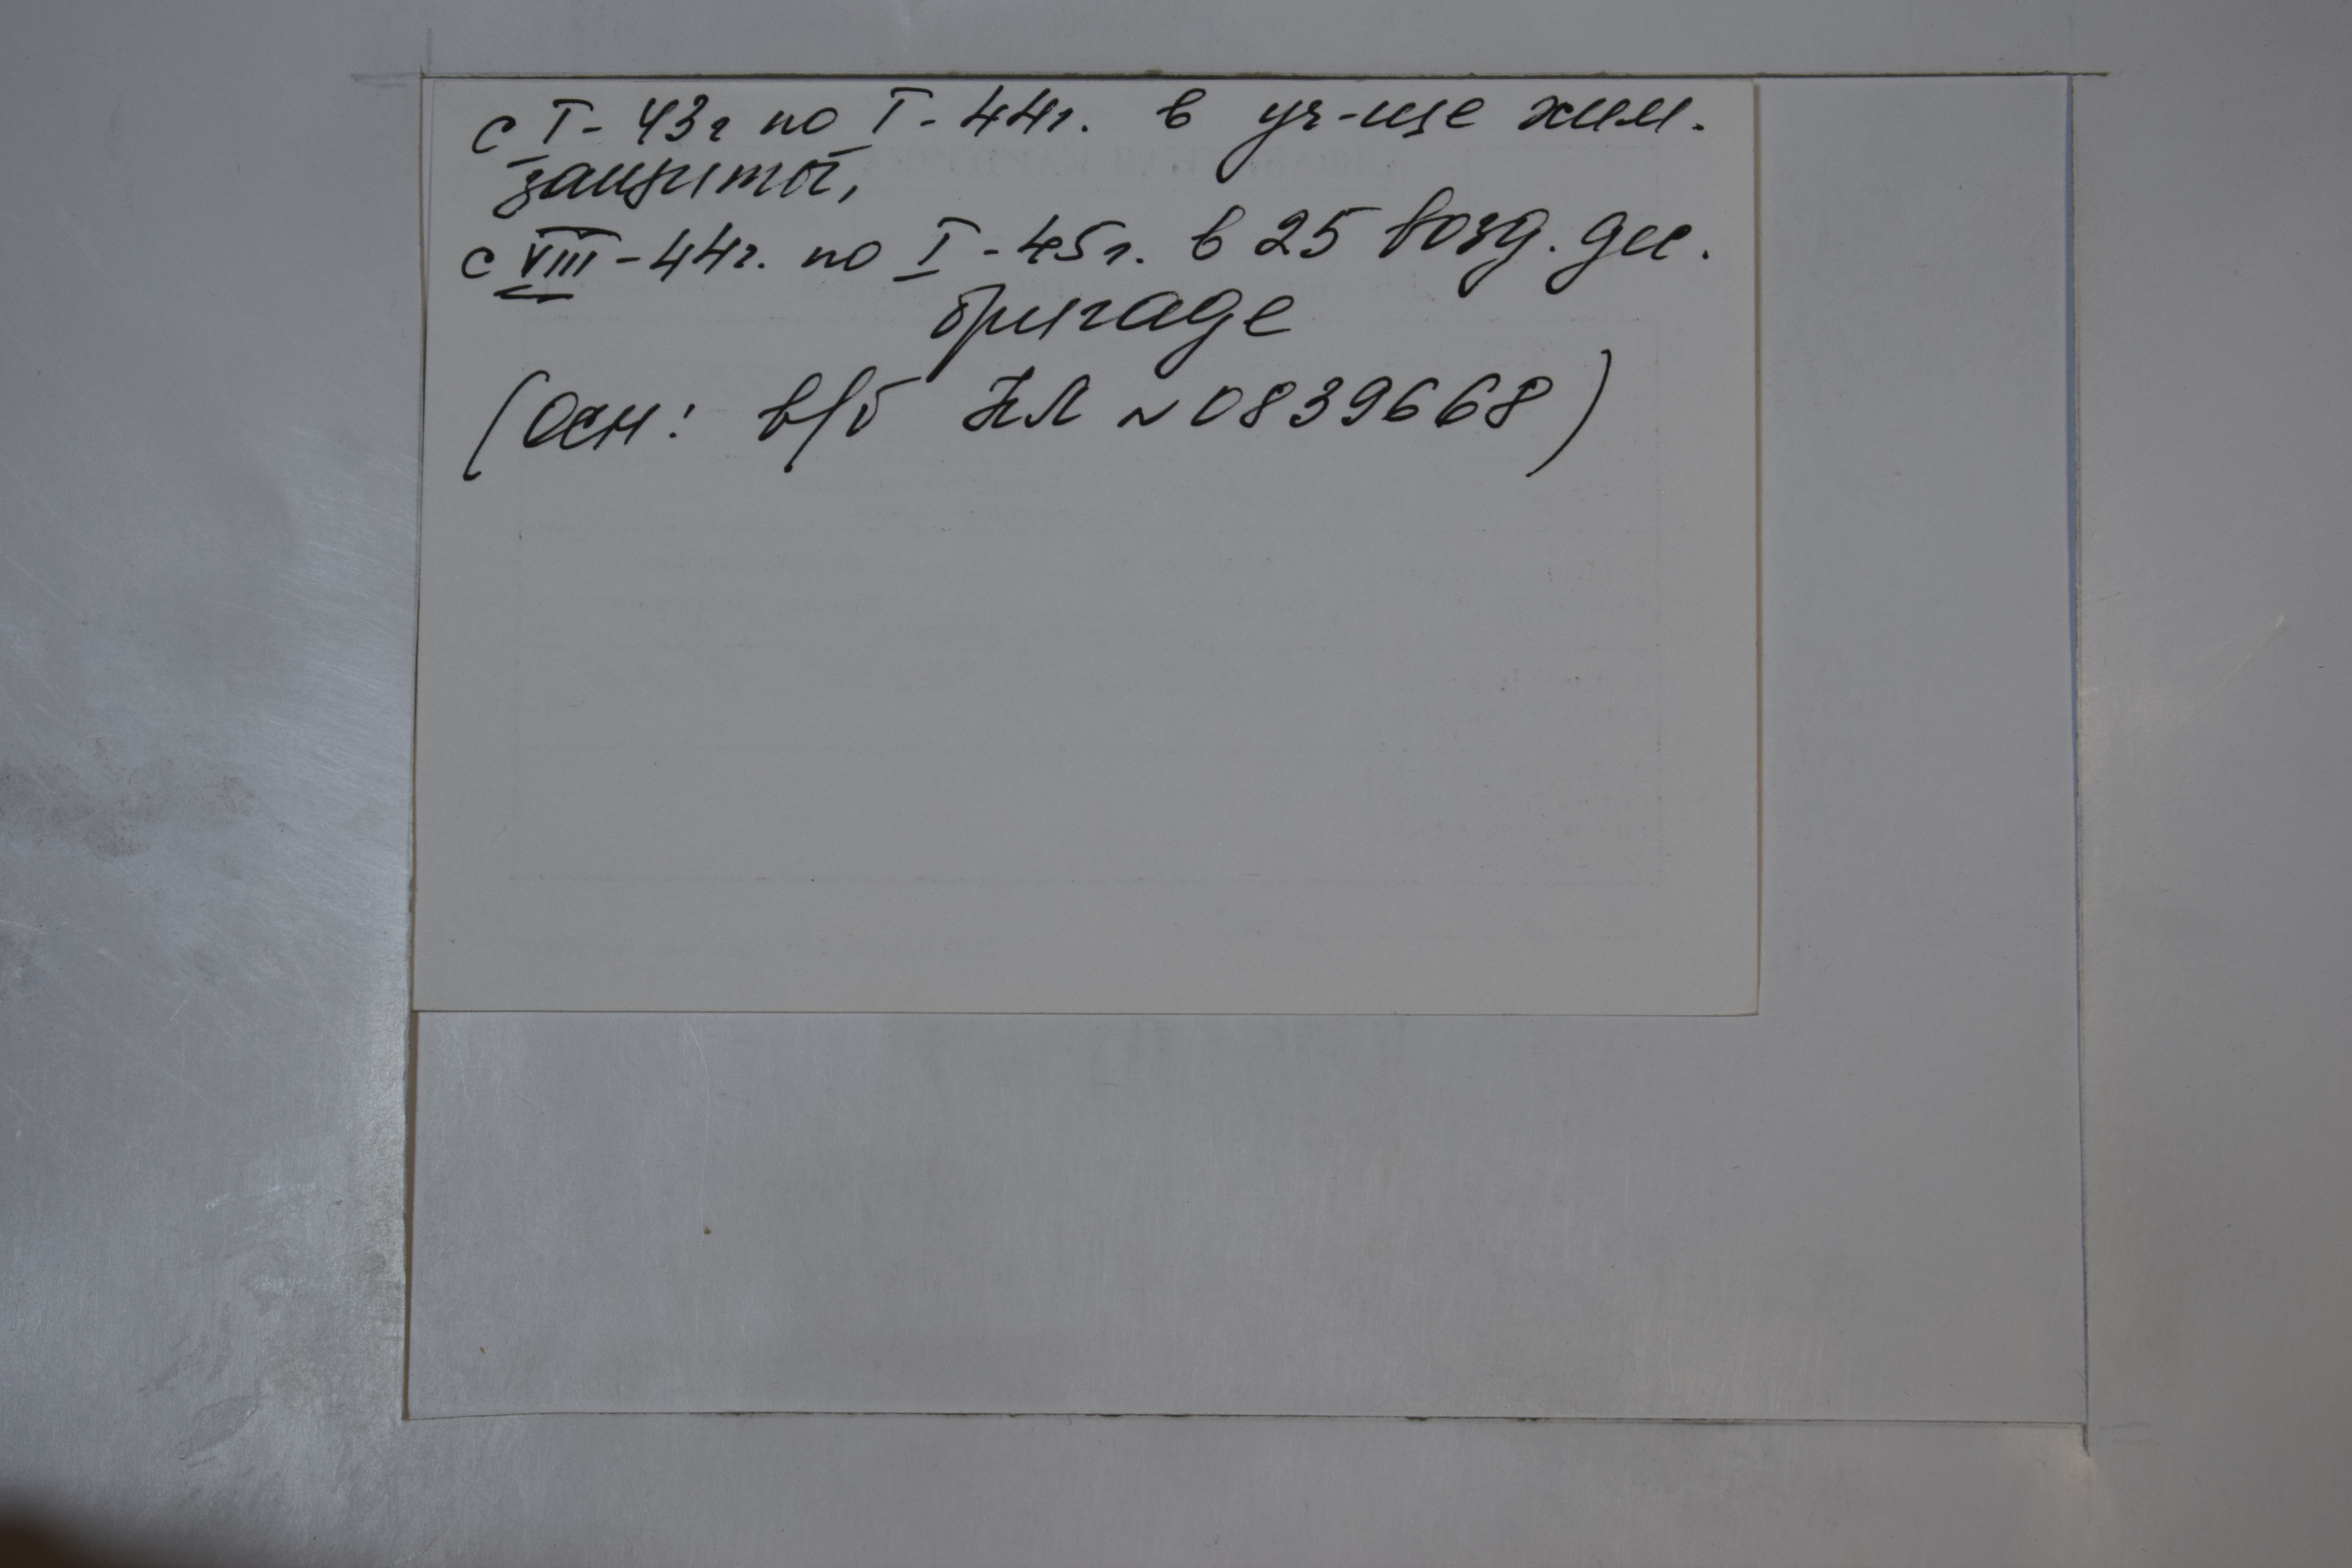 с I - 43г по I - 44г. в уч-ще хим.
защиты,
с VIII - 44г. по I - 45г. в 25 возд. дес.
бригаде
(Осн: в/б НЛ № 0839668)